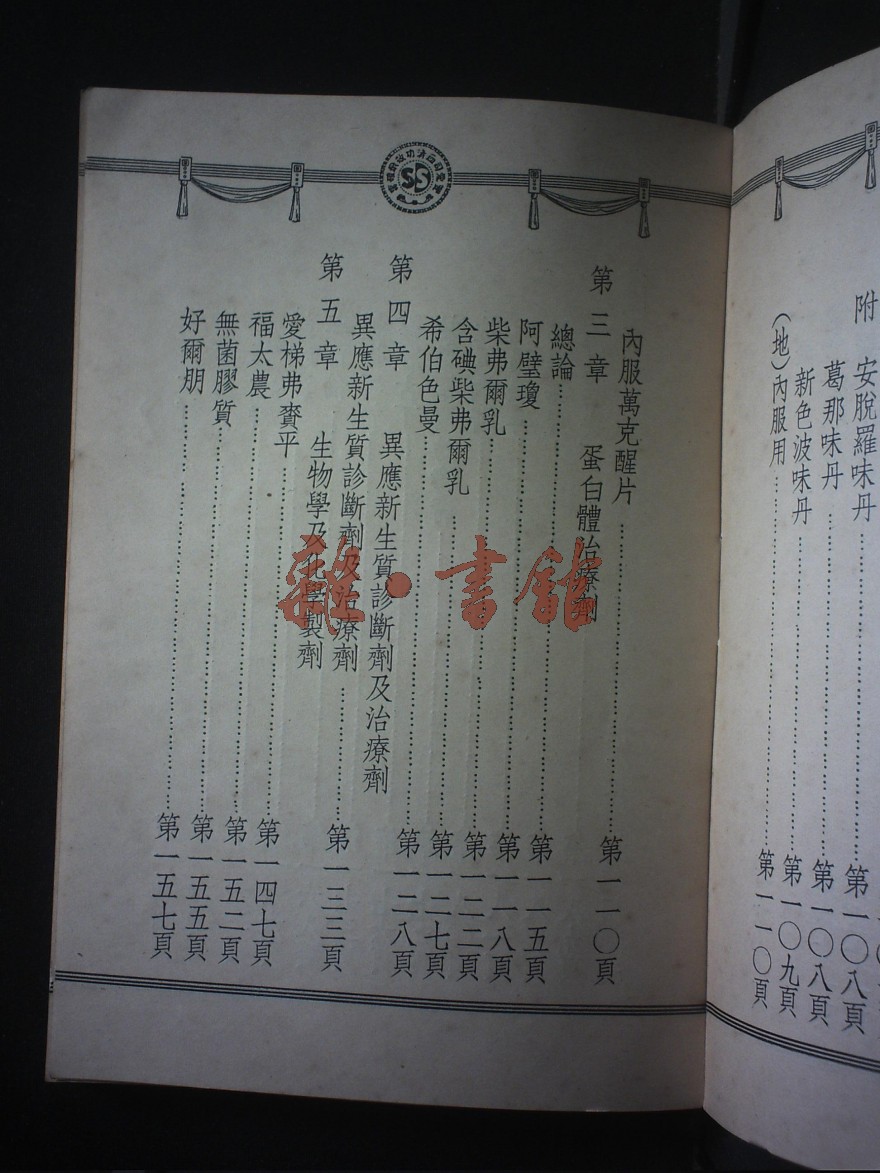 附 安脫羅味丹 第一〇八頁
葛那味丹……第一〇八頁
新色波味丹……第一〇九頁
(地)內服用……第一一〇頁
內服萬克醒片……第一一〇頁
第三章 蛋白體治療劑
總論……第一一五頁
阿璧瓊……第一一八頁
柴弗爾乳……第一二二頁
含碘柴弗爾乳……第一二七頁
希伯色曼……第一二八頁
第四章 異應新生質診斷劑及治療劑
異應新生質診斷劑及治療劑……第一三三頁
第五章 生物學及化學製劑
愛梯弗賚平……第一四七頁
福太農……第一五二頁
無菌膠質……第一五五頁
好爾朋……第一五七頁
雜·書館